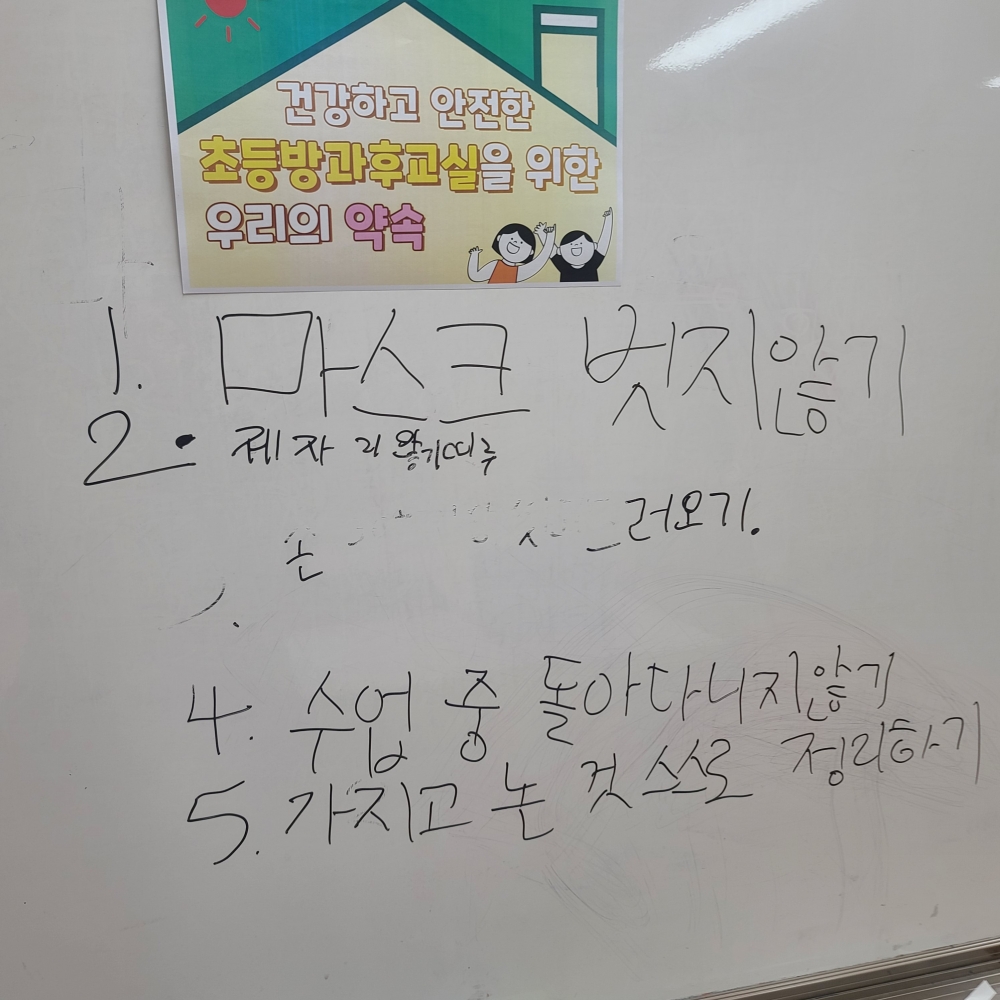 건강하고 안전한
초등방과후교실을 위한
우리의 약속
1. 마스크 벗지않기
2. 제자리 앉기
러오기.
4. 수업 중 돌아다니지않기
5. 가지고 논 것 스스로 정리하기